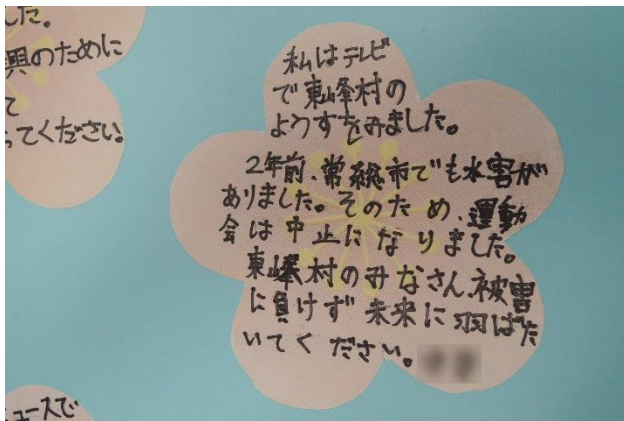 した。
興のために
て
ってください。
私はテレビ
で東峰村の
ようすをみました。
2年前、常総市でも水害が
ありました。そのため、運動
会は中止になりました。
東峰村のみなさん、被害
に負けず未来に羽ばた
いてください。
ュースで